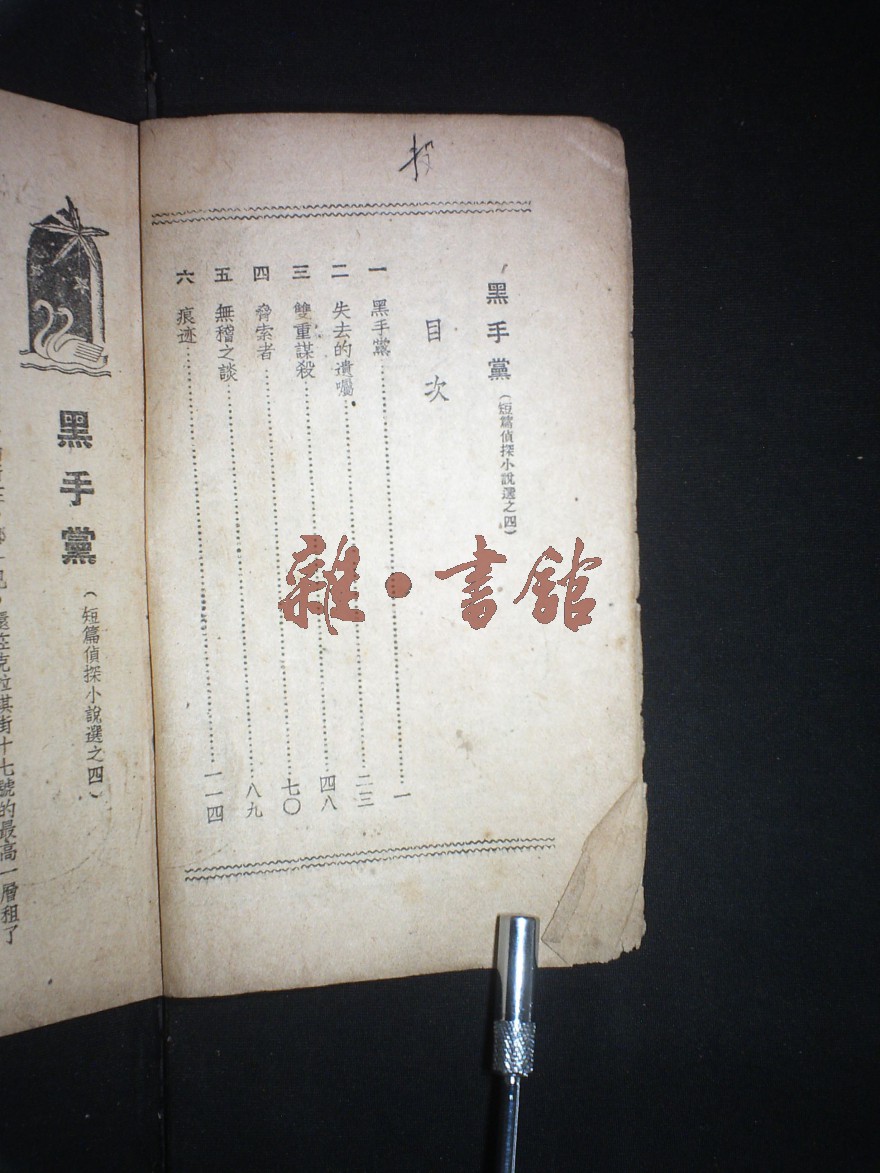 黑手黨(短篇偵探小說選之四)
目次
一 黑手黨……一
二 失去的遺囑……二三
三 雙重謀殺……四八
四 脅索者……七〇
五 無稽之談……八九
六 痕迹……一一四
雜·書館
黑手黨
(短篇偵探小說選之四)
克拉淇街十七號的最高一層租了